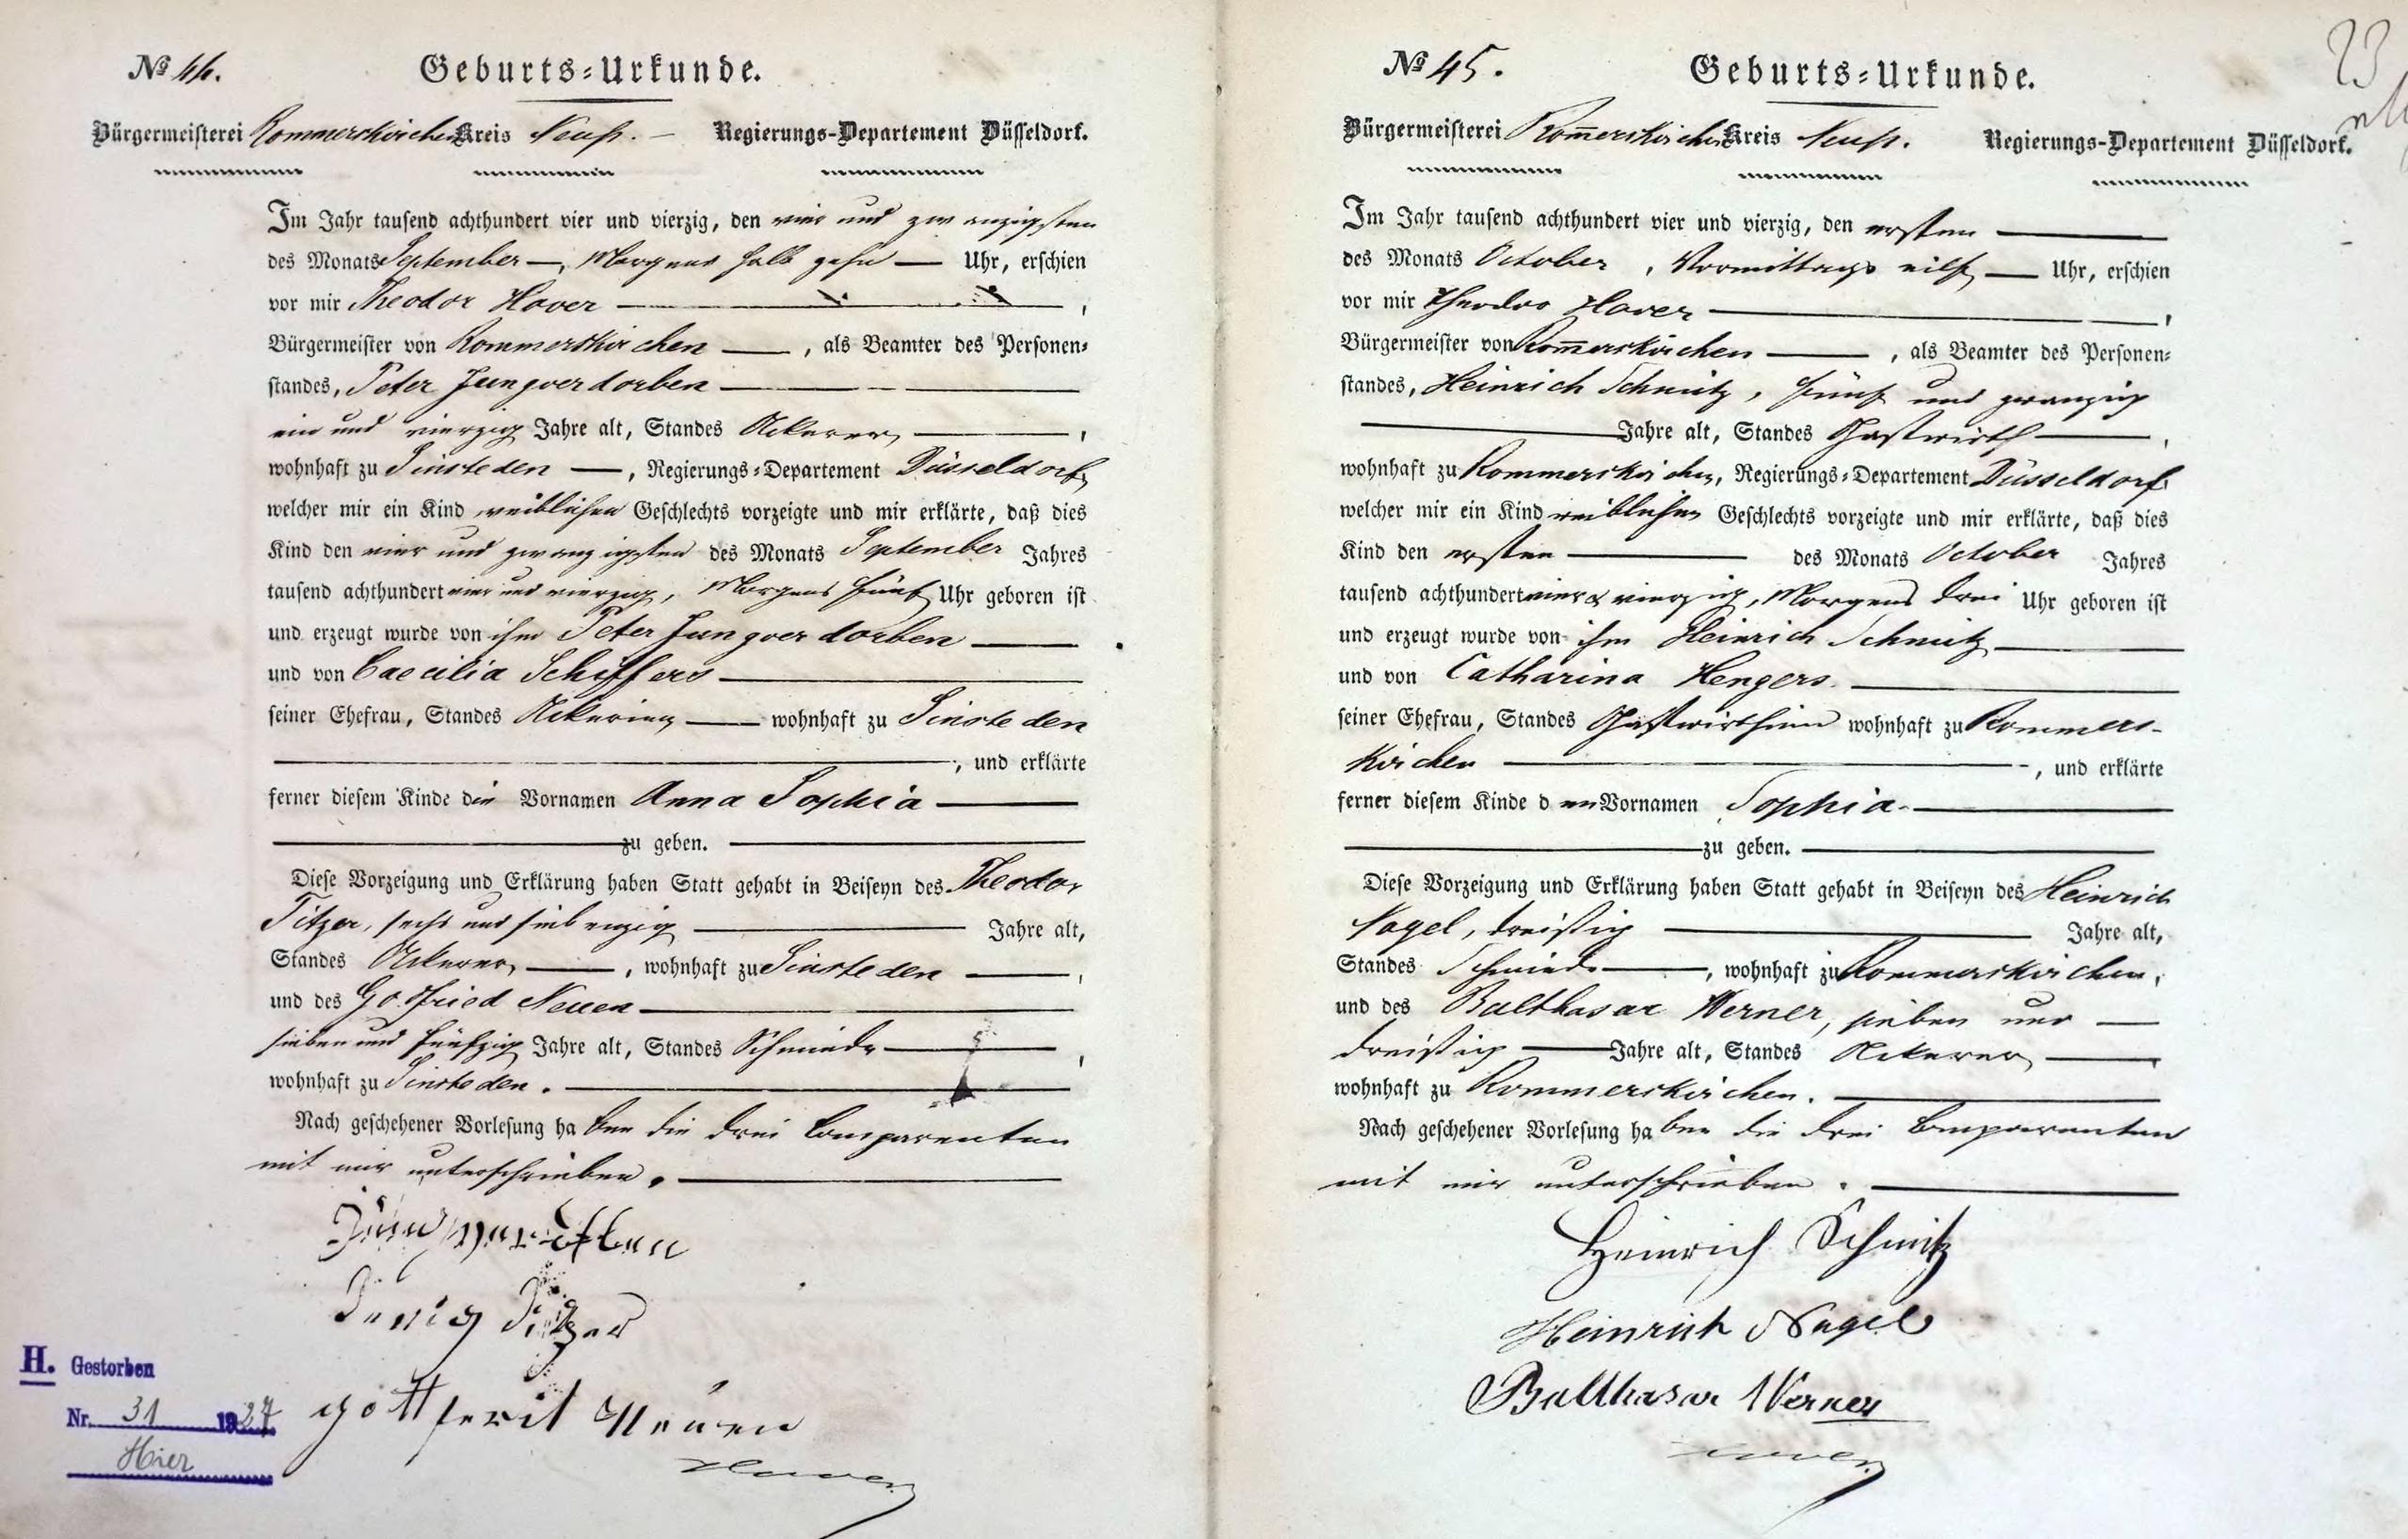 № 44.
Geburts-Urkunde.
Bürgermeisterei Rommerskirchen Kreis Neuß. Regierungs-Departement Düsseldorf.
Im Jahr tausend achthundert vier und vierzig, den vier und zwanzigsten
des Monats September, Morgens halb zehn Uhr, erschien
vor mir Theodor Hover,
Bürgermeister von Rommerskirchen, als Beamter des Personen-
standes, Peter Jungverdorben
ein und vierzig Jahre alt, Standes Ackerer,
wohnhaft zu Sinsteden, Regierungs-Departement Düsseldorf,
welcher mir ein Kind weiblichen Geschlechts vorzeigte und mir erklärte, daß dies
Kind den vier und zwanzigsten des Monats September Jahres
tausend achthundert vier und vierzig, Morgens fünf Uhr geboren ist
und erzeugt wurde von ihm Peter Jungverdorben
und von Caecilia Schiffers
seiner Ehefrau, Standes Ackerin, wohnhaft zu Sinsteden
, und erklärte
ferner diesem Kinde die Vornamen Anna Sophia
zu geben.
Diese Vorzeigung und Erklärung haben Statt gehabt in Beiseyn des Theodor
Titzer, sechs und siebenzig Jahre alt,
Standes Ackerer, wohnhaft zu Sinsteden,
und des Gotfried Neuen
sieben und fünfzig Jahre alt, Standes Schmiede,
wohnhaft zu Sinsteden.
Nach geschehener Vorlesung haben die drei Comparenten
mit mir unterschrieben.
Jungverdorben
Titzer
gottferit Neuen
Hover
H. Gestorben
Nr. 31 1927
Hier
23
№ 45.
Geburts-Urkunde.
Bürgermeisterei Rom̅erskirchen Kreis Neuß. Regierungs-Departement Düsseldorf.
Im Jahr tausend achthundert vier und vierzig, den ersten
des Monats October, Vormittags eilf Uhr, erschien
vor mir Theodor Hover,
Bürgermeister von Rom̅erskirchen, als Beamter des Personen-
standes, Heinrich Schmitz, fünf und zwanzig
Jahre alt, Standes Gastwirth,
wohnhaft zu Rommerskirchen, Regierungs-Departement Düsseldorf,
welcher mir ein Kind weiblichen Geschlechts vorzeigte und mir erklärte, daß dies
Kind den ersten des Monats October Jahres
tausend achthundert vier & vierzig, Morgens drei Uhr geboren ist
und erzeugt wurde von ihm Heinrich Schmitz
und von Catharina Hengers.
seiner Ehefrau, Standes Gastwirthinn wohnhaft zu Rommers-
kirchen, und erklärte
ferner diesem Kinde den Vornamen Sophia
zu geben.
Diese Vorzeigung und Erklärung haben Statt gehabt in Beiseyn des Heinrich
Nagel, dreißig Jahre alt,
Standes Schmiede, wohnhaft zu Rommerskirchen,
und des Balthasar Werner, sieben und
dreißig Jahre alt, Standes Ackerer,
wohnhaft zu Rommerskirchen.
Nach geschehener Vorlesung haben die drei Comparenten
mit mir unterschrieben.
Heinrich Schmitz
Heinrich Nagel
Balthasar Werner
Hover